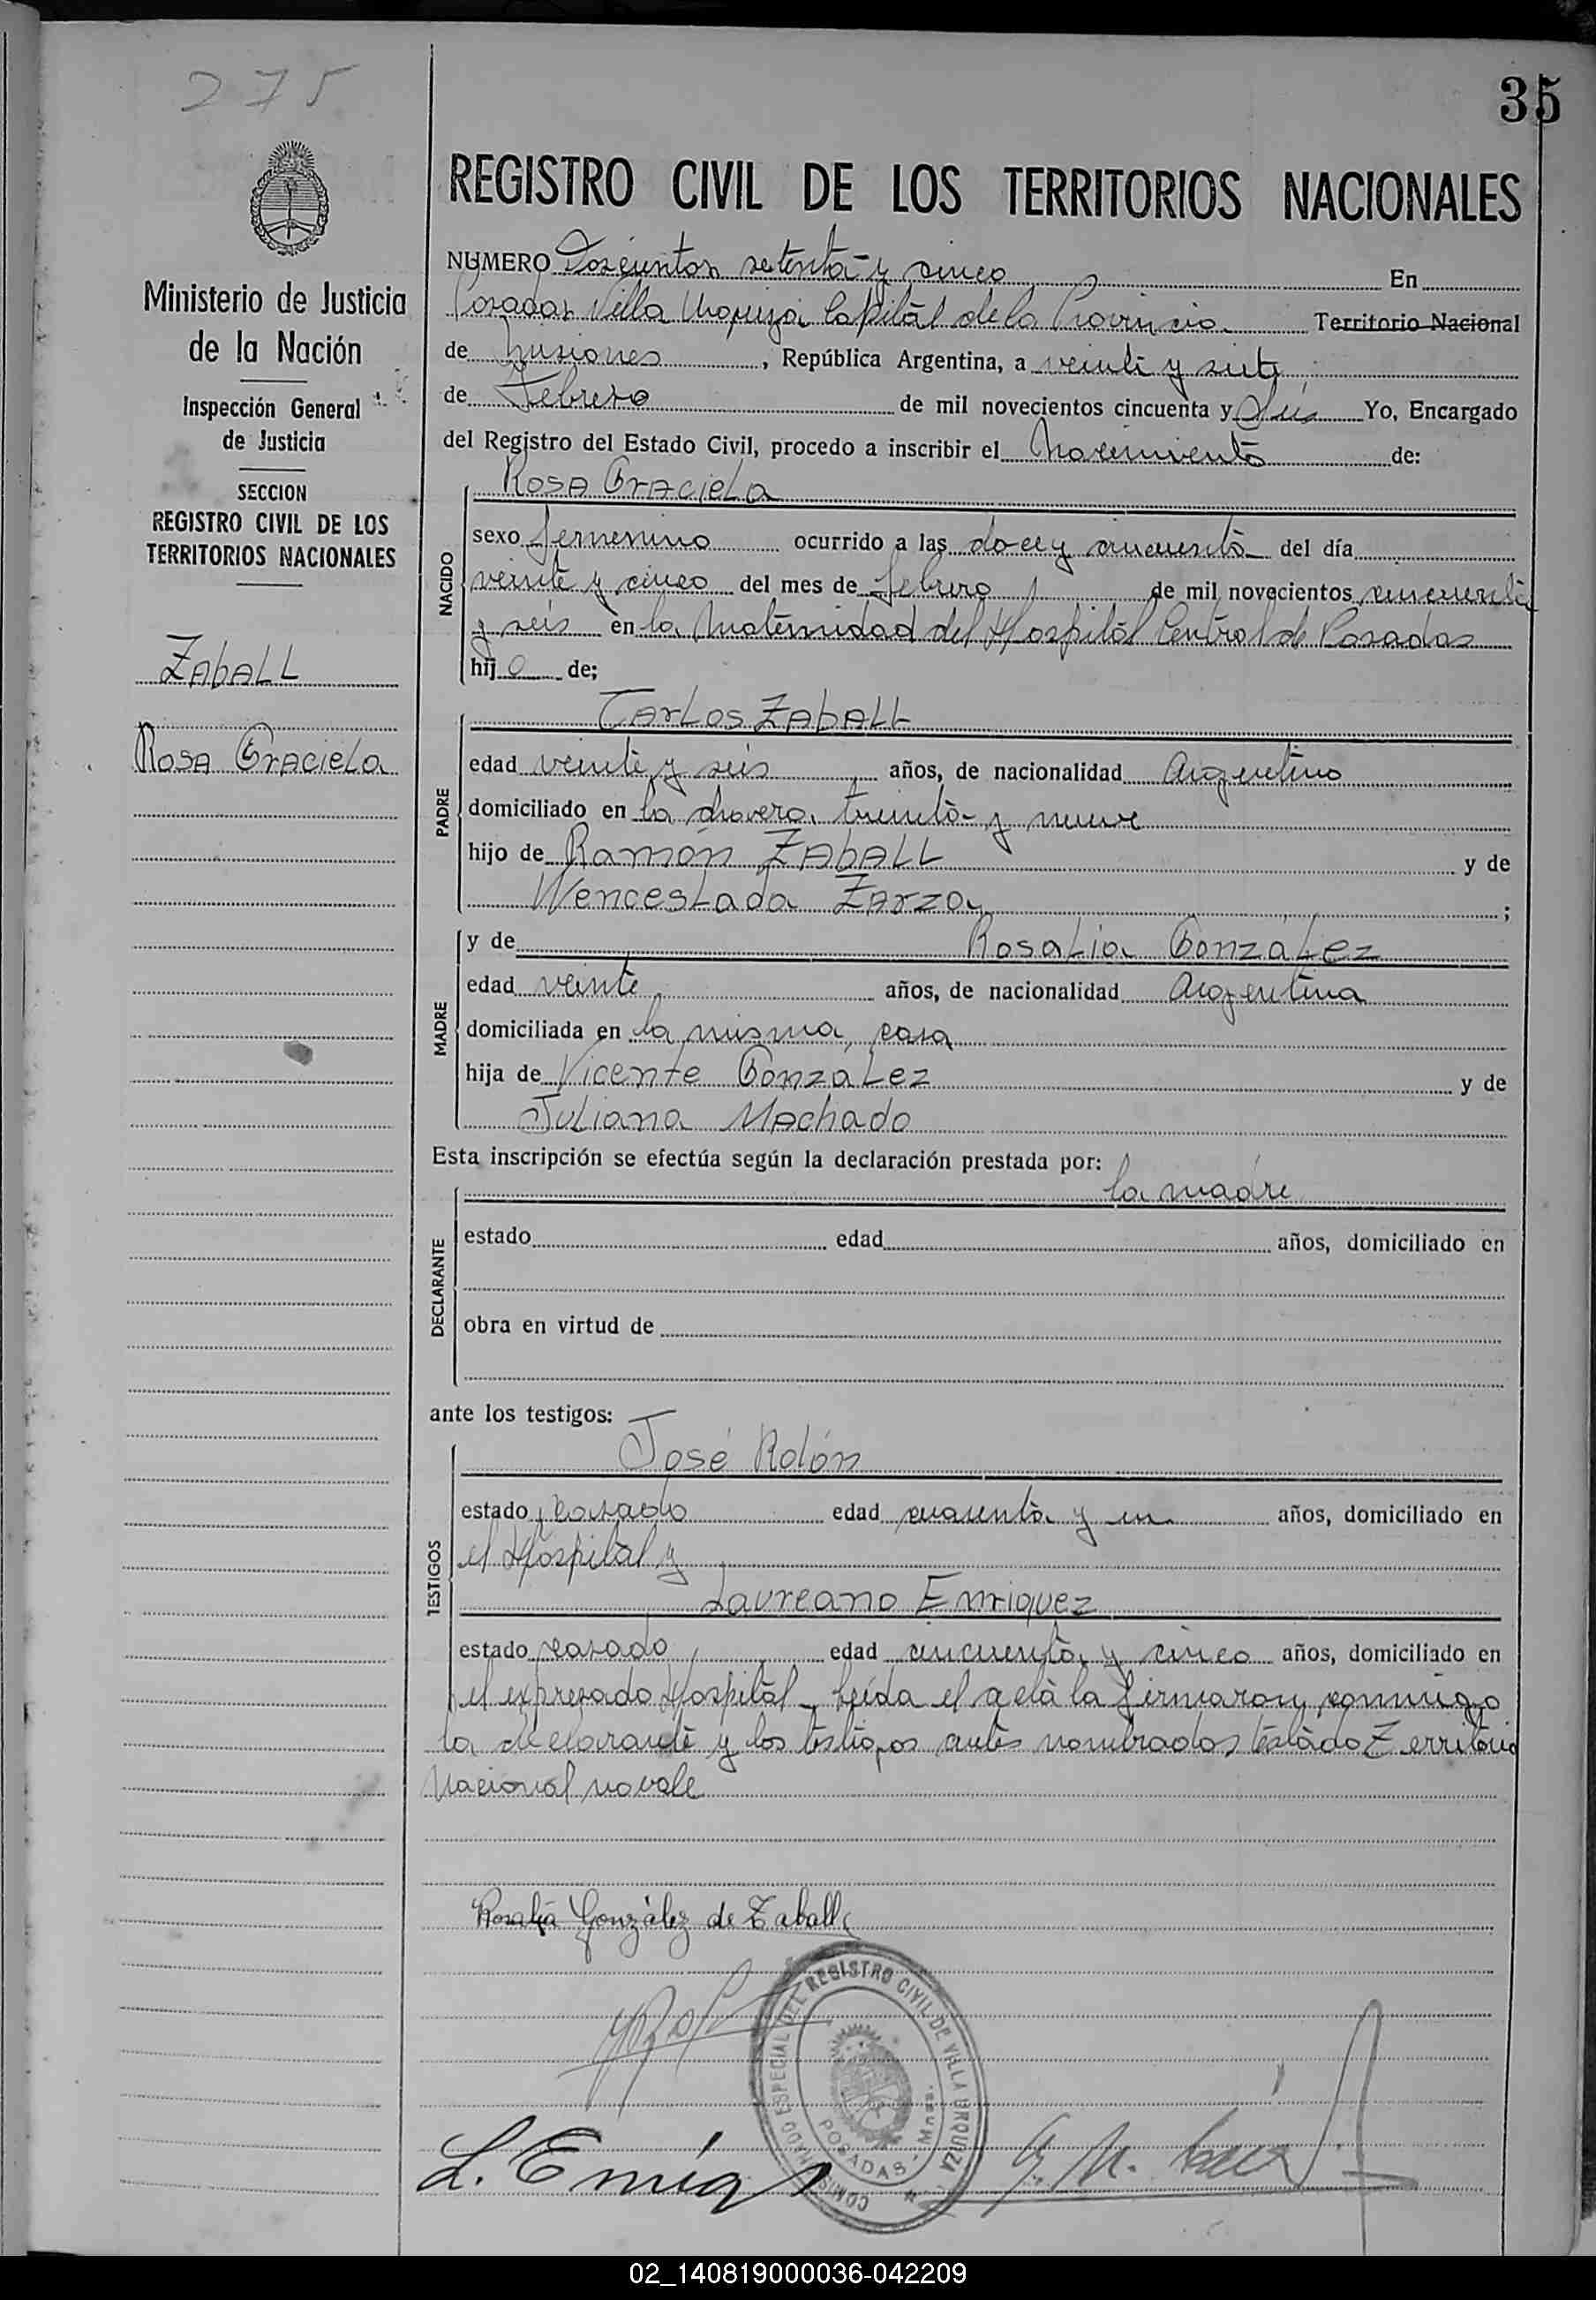 275
35
REGISTRO CIVIL DE LOS TERRITORIOS NACIONALES
Ministerio de Justicia
de la Nación
Inspección General
de Justicia
SECCION
REGISTRO CIVIL DE LOS
TERRITORIOS NACIONALES
ZAbALL
Rosa Graciela
NUMERO Doscientos setenta y cinco En
Posadas Villa Urquiza Capital de la Provincia Territorio Nacional
de Misiones, República Argentina, a veinte y siete
de Febrero de mil novecientos cincuenta y Seis Yo, Encargado
del Registro del Estado Civil, procedo a inscribir el Nacimiento de:
NACIDO
Rosa Graciela
sexo femenino ocurrido a las doce y cincuenta del día
veinte y cinco del mes de febrero de mil novecientos cincuenta
y seis en la Maternidad del Hospital Central de Posadas
hijo de;
PADRE
Carlos Zaball
edad veinte y seis años, de nacionalidad Argentino
domiciliado en la chacra treinta y nueve
hijo de Ramón Zaball y de
Wenceslada Zarza;
MADRE
y de Rosalía González
edad veinte años, de nacionalidad Argentina
domiciliada en la misma casa
hija de Vicente González y de
Juliana Machado
Esta inscripción se efectúa según la declaración prestada por:
la madre
DECLARANTE
estado edad años, domiciliado en
obra en virtud de
ante los testigos:
TESTIGOS
José Rolón
estado casado edad cuarenta y un años, domiciliado en
el Hospital y
Laureano Enriquez
estado casado edad cincuenta y cinco años, domiciliado en
el expresado Hospital - Leída el acta la firmaron conmigo
la declarante y los testigos antes nombrados testado Territorio
Nacional no vale
Rosalía González de Zaball
COMISIONADO ESPECIAL DEL REGISTRO CIVIL DE VILLA URQUIZA
POSADAS - Mnes.
L. Enriq
02_140819000036-042209